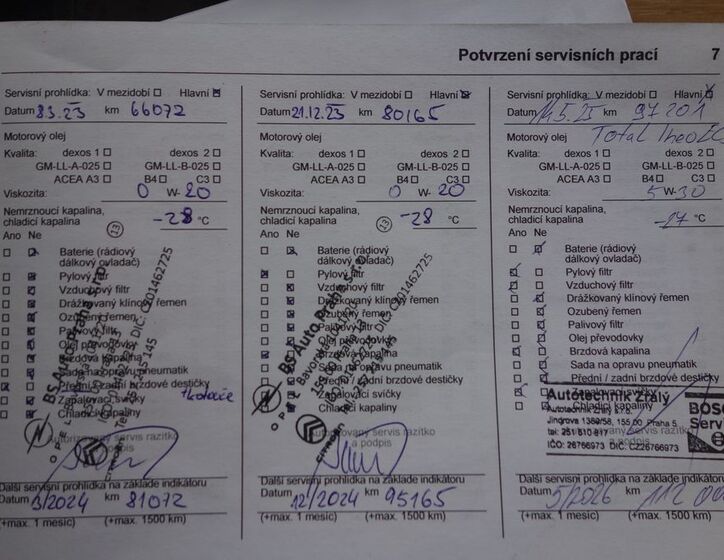 Potvrzení servisních prací 7
Servisní prohlídka: V mezidobí Hlavní
Datum 8.3.23 km 66072
Motorový olej
Kvalita: dexos 1 dexos 2
GM-LL-A-025 GM-LL-B-025
ACEA A3 B4 C3
Viskozita: 0 W- 20
Nemrznoucí kapalina,
chladicí kapalina -28 °C
Ano Ne 13
Baterie (rádiový
dálkový ovladač)
Pylový filtr
Vzduchový filtr
Drážkovaný klínový řemen
Ozubený řemen
Palivový filtr
Olej převodovky
Brzdová kapalina
Sada na opravu pneumatik
Přední / zadní brzdové destičky
Zapalovací svíčky
Chladicí kapalina
BS Auto Praha s.r.o.
DIČ: CZ01462725
OPEL
Autorizovaný servis razítko
a podpis
Další servisní prohlídka na základě indikátoru
Datum 3/2024 km 81072
(+max. 1 měsíc) (+max. 1500 km)
Servisní prohlídka: V mezidobí Hlavní
Datum 21.12.23 km 80165
Motorový olej
Kvalita: dexos 1 dexos 2
GM-LL-A-025 GM-LL-B-025
ACEA A3 B4 C3
Viskozita: 0 W- 20
Nemrznoucí kapalina,
chladicí kapalina -28 °C
Ano Ne 13
Baterie (rádiový
dálkový ovladač)
Pylový filtr
Vzduchový filtr
Drážkovaný klínový řemen
Ozubený řemen
Palivový filtr
Olej převodovky
Brzdová kapalina
Sada na opravu pneumatik
Přední / zadní brzdové destičky
Zapalovací svíčky
Chladicí kapalina
BS Auto Praha s.r.o.
DIČ: CZ01462725
OPEL
CITROËN
Autorizovaný servis razítko
a podpis
Další servisní prohlídka na základě indikátoru
Datum 12/2024 km 95165
(+max. 1 měsíc) (+max. 1500 km)
Servisní prohlídka: V mezidobí Hlavní
Datum 14.5.25 km 97201
Motorový olej Total
Kvalita: dexos 1 dexos 2
GM-LL-A-025 GM-LL-B-025
ACEA A3 B4 C3
Viskozita: 5 W- 30
Nemrznoucí kapalina,
chladicí kapalina °C
Ano Ne
Baterie (rádiový
dálkový ovladač)
Pylový filtr
Vzduchový filtr
Drážkovaný klínový řemen
Ozubený řemen
Palivový filtr
Olej převodovky
Brzdová kapalina
Sada na opravu pneumatik
Přední / zadní brzdové destičky
Zapalovací svíčky
Chladicí kapalina
Autotechnik Zralý
Autotechnik Zralý s.r.o.
Jingrova 1389/58, 155 00 Praha 5
tel: 251 610 817
IČO: 26766973 DIČ: CZ26766973
BOS
Servi
Autorizovaný servis razítko
a podpis
Další servisní prohlídka na základě indikátoru
Datum 5/2026 km
(+max. 1 měsíc) (+max. 1500 km)